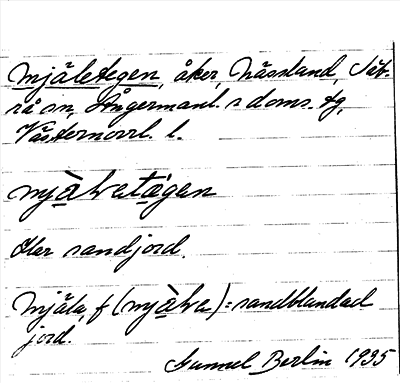 Mjäletegen, åker, Nässland, Säb-
rå sn, Ångermanl. s doms. tg,
Västernorrl. l.
mjàlvetágen
Har sandjord.
Mjäla f (mjàlva) = sandblandad
jord.
Gunnel Berlin 1935